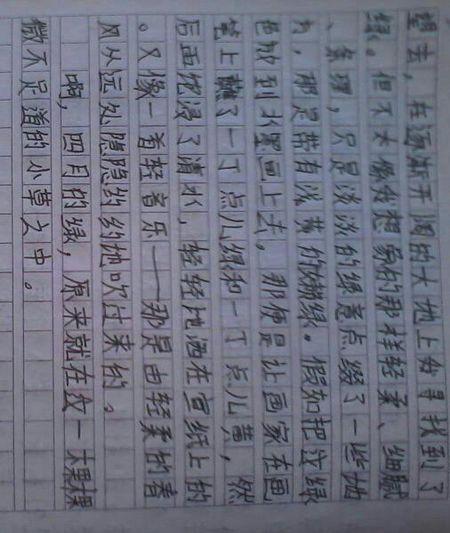 望去，在逐渐开阔的大地上寻找到了
绿。但不太像我想象的那样轻柔、细腻
、条理，只是淡淡的绿意点缀了一些地
方，那是带有淡黄的嫩绿。假如把这绿
色放到水墨画上去，那便是让画家在画
笔上蘸了一丁点儿绿和一丁点儿黄，然
后再饱浸了清水，轻轻地洒在宣纸上的
。又像一首轻音乐——那是由轻柔的春
风从远处隐隐约约地吹过来的。
啊，四月的绿，原来就在这一棵棵
微不足道的小草之中。